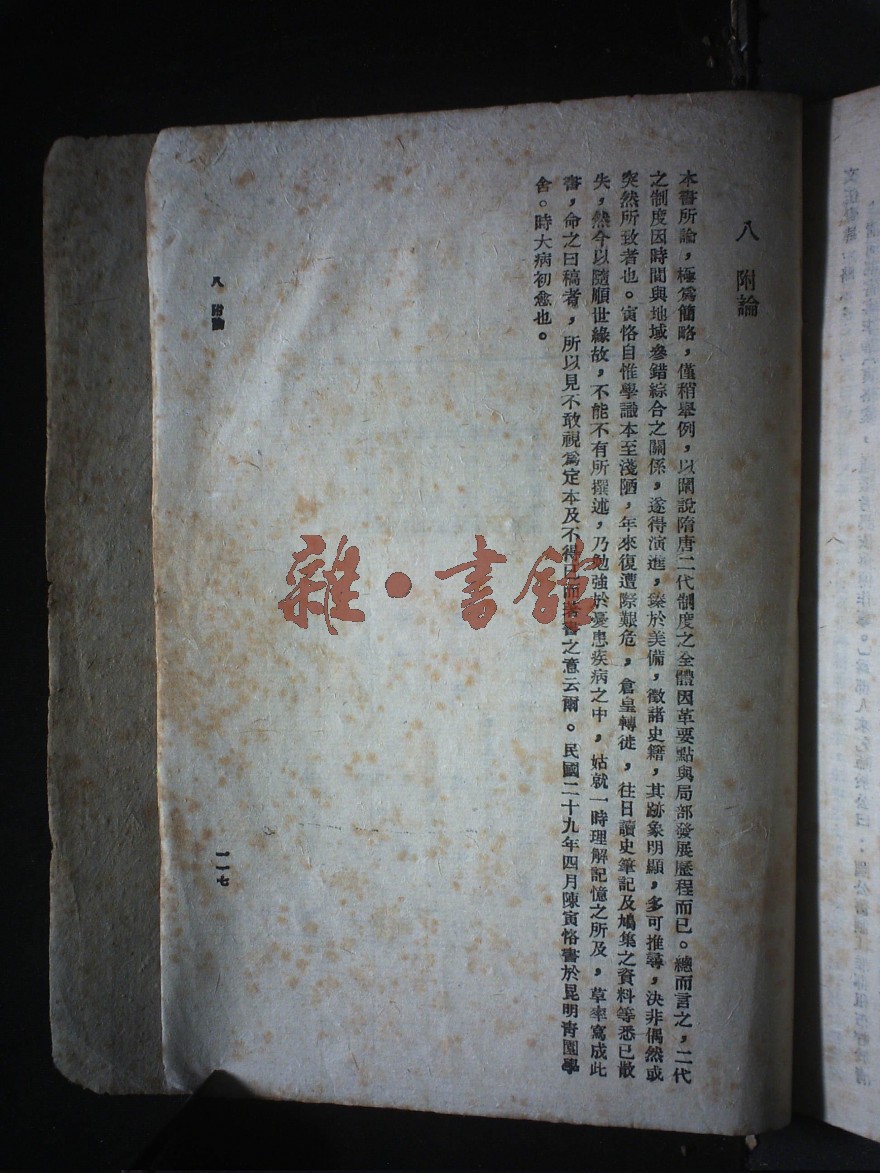 八 附論
本書所論，極爲簡略，僅稍舉例，以闡說隋唐二代制度之全體因革要點與局部發展歷程而已。總而言之，二代
之制度因時間與地域參錯綜合之關係，遂得演進，臻於美備，徵諸史籍，其跡象明顯，多可推尋，決非偶然或
突然所致者也。寅恪自惟學識本至淺陋，年來復遭際艱危，倉皇轉徙，往日讀史筆記及鳩集之資料等悉已散
失，然今以隨順世緣故，不能不有所撰述，乃勉強於憂患疾病之中，姑就一時理解記憶之所及，草率寫成此
書，命之曰稿者，所以見不敢視爲定本及不得已而著書之意云爾。民國二十九年四月陳寅恪書於昆明青園學
舍。時大病初愈也。
八 附論
一一七
雜·書館